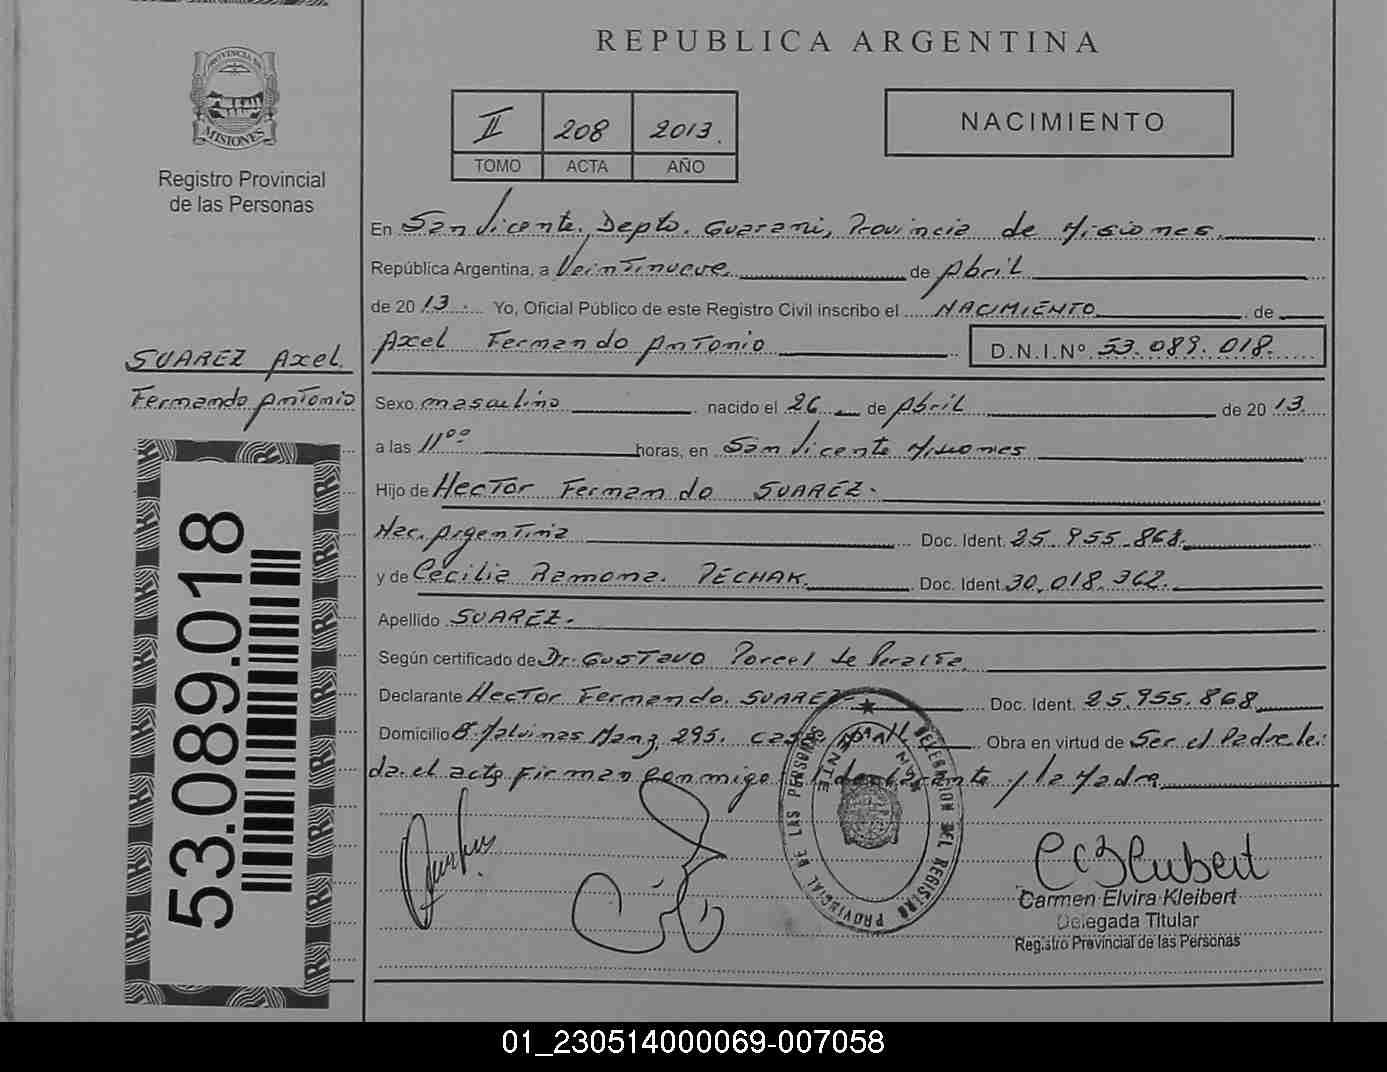 REPUBLICA ARGENTINA
PROVINCIA DE
MISIONES
Registro Provincial
de las Personas
II 208 2013.
TOMO ACTA AÑO
NACIMIENTO
En San Vicente, Depto. Guarani, Provincia de Misiones.
República Argentina, a Veintinueve de Abril
de 2013. Yo, Oficial Público de este Registro Civil inscribo el NACIMIENTO de
Axel Fernando Antonio D.N.I.Nº 53.089.018.
SUAREZ Axel.
Fernando Antonio
Sexo masculino nacido el 26 de Abril de 2013.
a las 11⁰⁰ horas, en San Vicente Misiones
Hijo de Hector Fernando SUAREZ.
Nac. Argentina Doc. Ident. 25.955.868.
y de Cecilia Ramona. PECHAK. Doc. Ident. 30.018.362.
Apellido SUAREZ.
Según certificado de Dr. Gustavo Porcel de Peralta
Declarante Hector Fernando. SUAREZ Doc. Ident. 25.955.868
Domicilio Bº Malvinas Manz 295. casa Obra en virtud de Ser el Padre lei
da el acta firman conmigo el declarante y la Madre
53.089.018
DELEGACION DEL REGISTRO PROVINCIAL DE LAS PERSONAS
SAN VICENTE
Carmen Elvira Kleibert
Delegada Titular
Registro Provincial de las Personas
01_230514000069-007058